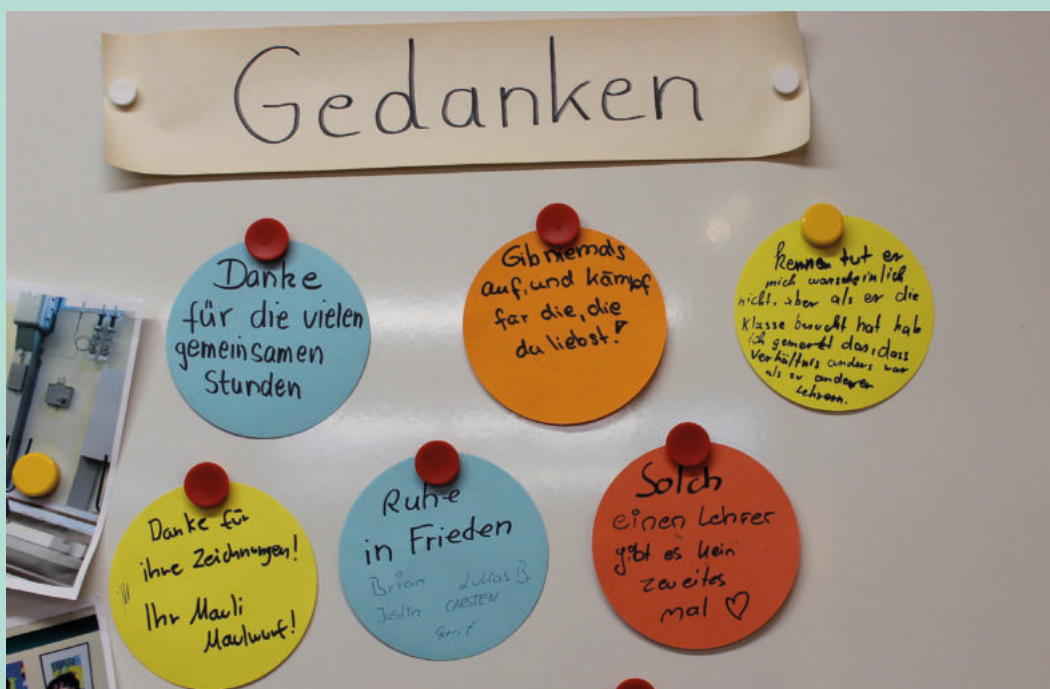 Gedanken
Danke
für die vielen
gemeinsamen
Stunden
Gib niemals
auf, und kämpf
für die, die
du liebst!
kennen tut er
mich warscheinlich
nicht. aber als er die
Klasse besucht hat hab
ich gemerkt das, dass
Verhältnis anders war
als zu anderen
Lehrern.
Danke für
ihre Zeichnungen!
Ihr Mauli
Maulwurf!
Ruhe
in Frieden
Brian Lukas B.
Justin CARSTEN
Solch
einen Lehrer
gibt es kein
zweites
mal ♡